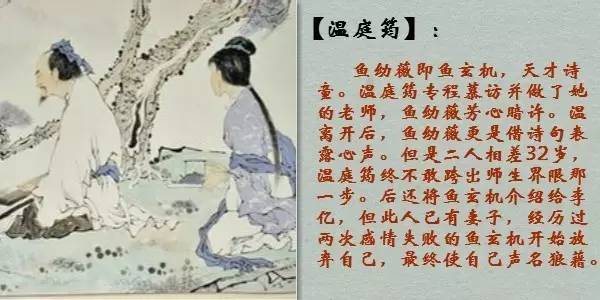 【温庭筠】：
鱼幼薇即鱼玄机，天才诗
童。温庭筠专程慕访并做了她
的老师，鱼幼薇芳心暗许。温
离开后，鱼幼薇更是借诗句表
露心声。但是二人相差32岁，
温庭筠终不敢跨出师生界眼那
一步。后还将鱼玄机介绍给李
亿，但此人已有妻子，经历过
两次感情失败的鱼玄机开始放
弃自己，最终使自己声名狼藉。